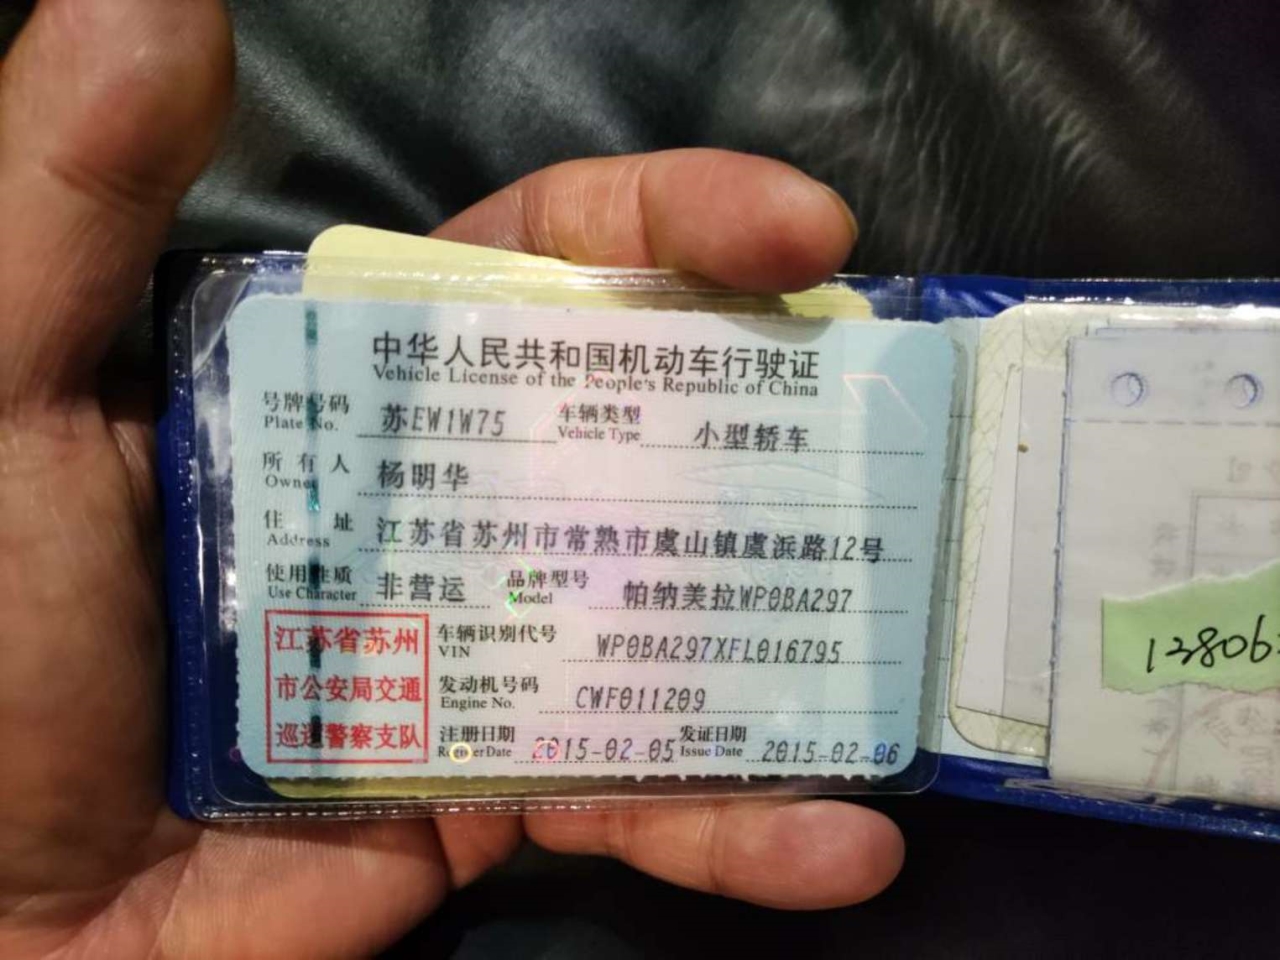 中华人民共和国机动车行驶证
Vehicle License of the People's Republic of China
号牌号码 苏EW1W75 车辆类型 小型轿车
Plate No. Vehicle Type
所有人 杨明华
Owner
住址 江苏省苏州市常熟市虞山镇虞浜路12号
Address
使用性质 非营运 品牌型号 帕纳美拉WP0BA297
Use Character Model
江苏省苏州
市公安局交通
巡逻警察支队
车辆识别代号 WP0BA297XFL016795
VIN
发动机号码 CWF011209
Engine No.
注册日期 2015-02-05 发证日期 2015-02-06
Register Date Issue Date
138063